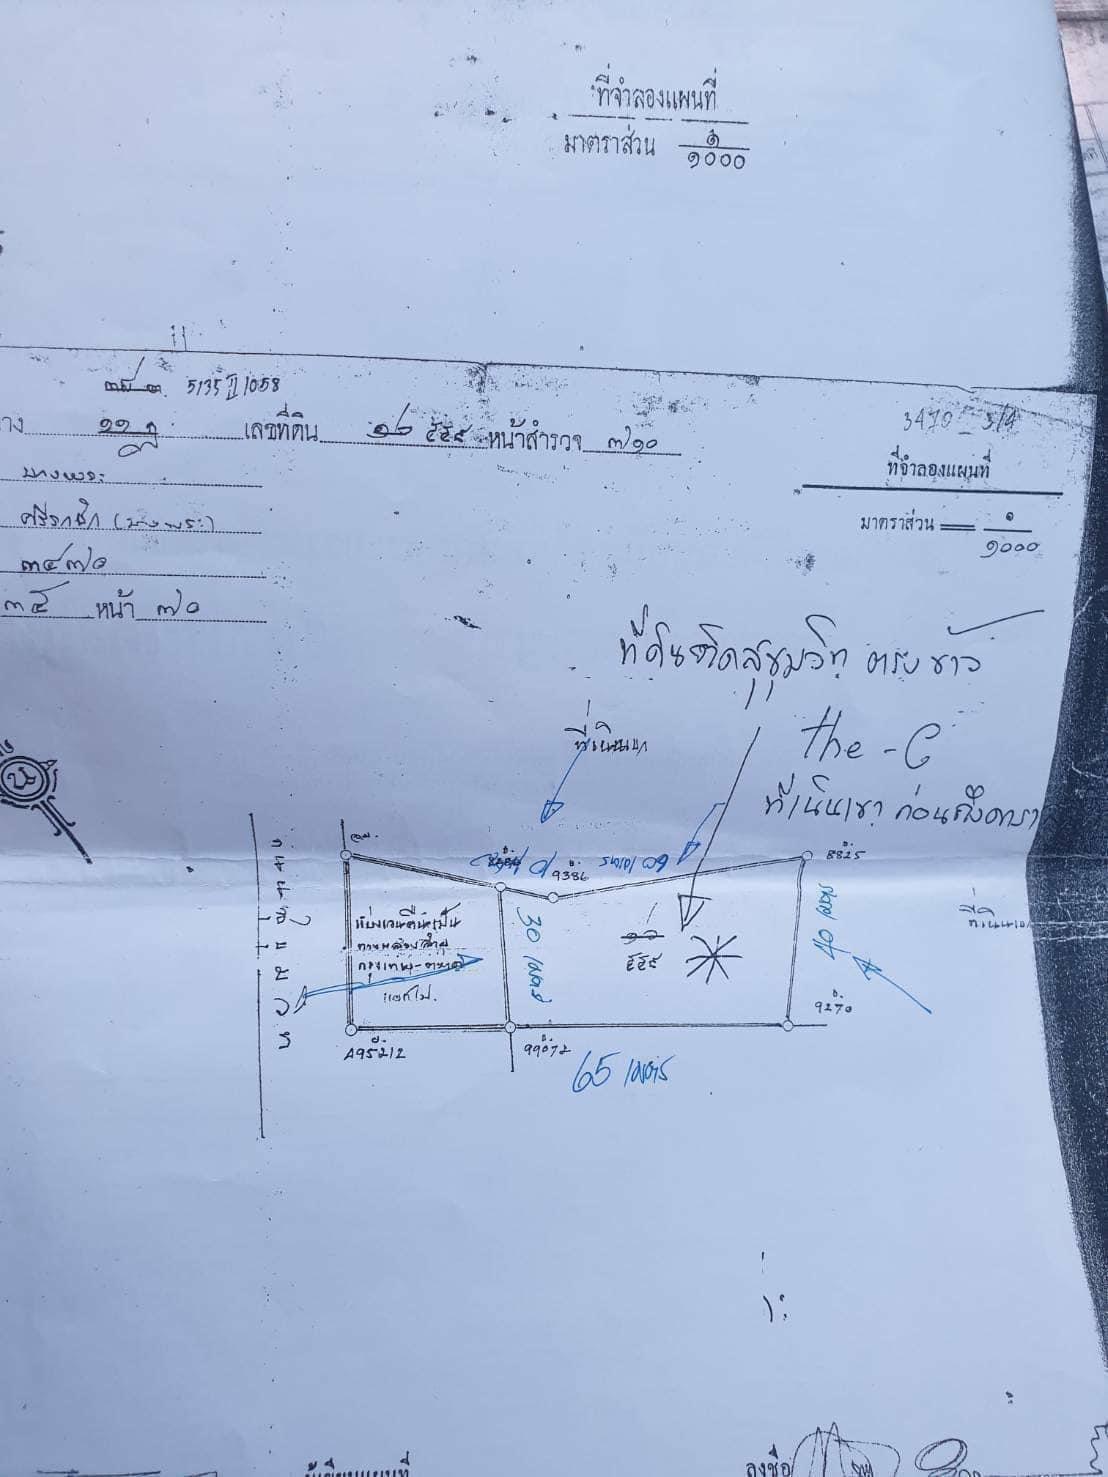 ที่จำลองแผนที่
มาตราส่วน ๑
๑๐๐๐
5135 II 1058
เลขที่ดิน ๑๒ ๕๕๙ หน้าสำรวจ ๓๗๑๐
3470
บางพระ
ศรีราชา (บางพระ)
๓๔๗๐
๓๕ หน้า ๗๐
ที่จำลองแผนที่
มาตราส่วน ๑
๑๐๐๐
ที่ดินติดสุขุมวิท ตรงข้าม
the - C
ที่เนินเขา ก่อนถึงดารา
ที่เนินเขา
น
9386
60 เมตร
8825
ที่เนินเขา
30 เมตร
๑๒
๕๕๙
40 เมตร
แบ่งเวนคืนเป็น
ทางหลวงสาย
กรุงเทพ-ตราด
9270
A95212
99072
65 เมตร
ผู้เขียนแผนที่
ลงชื่อ